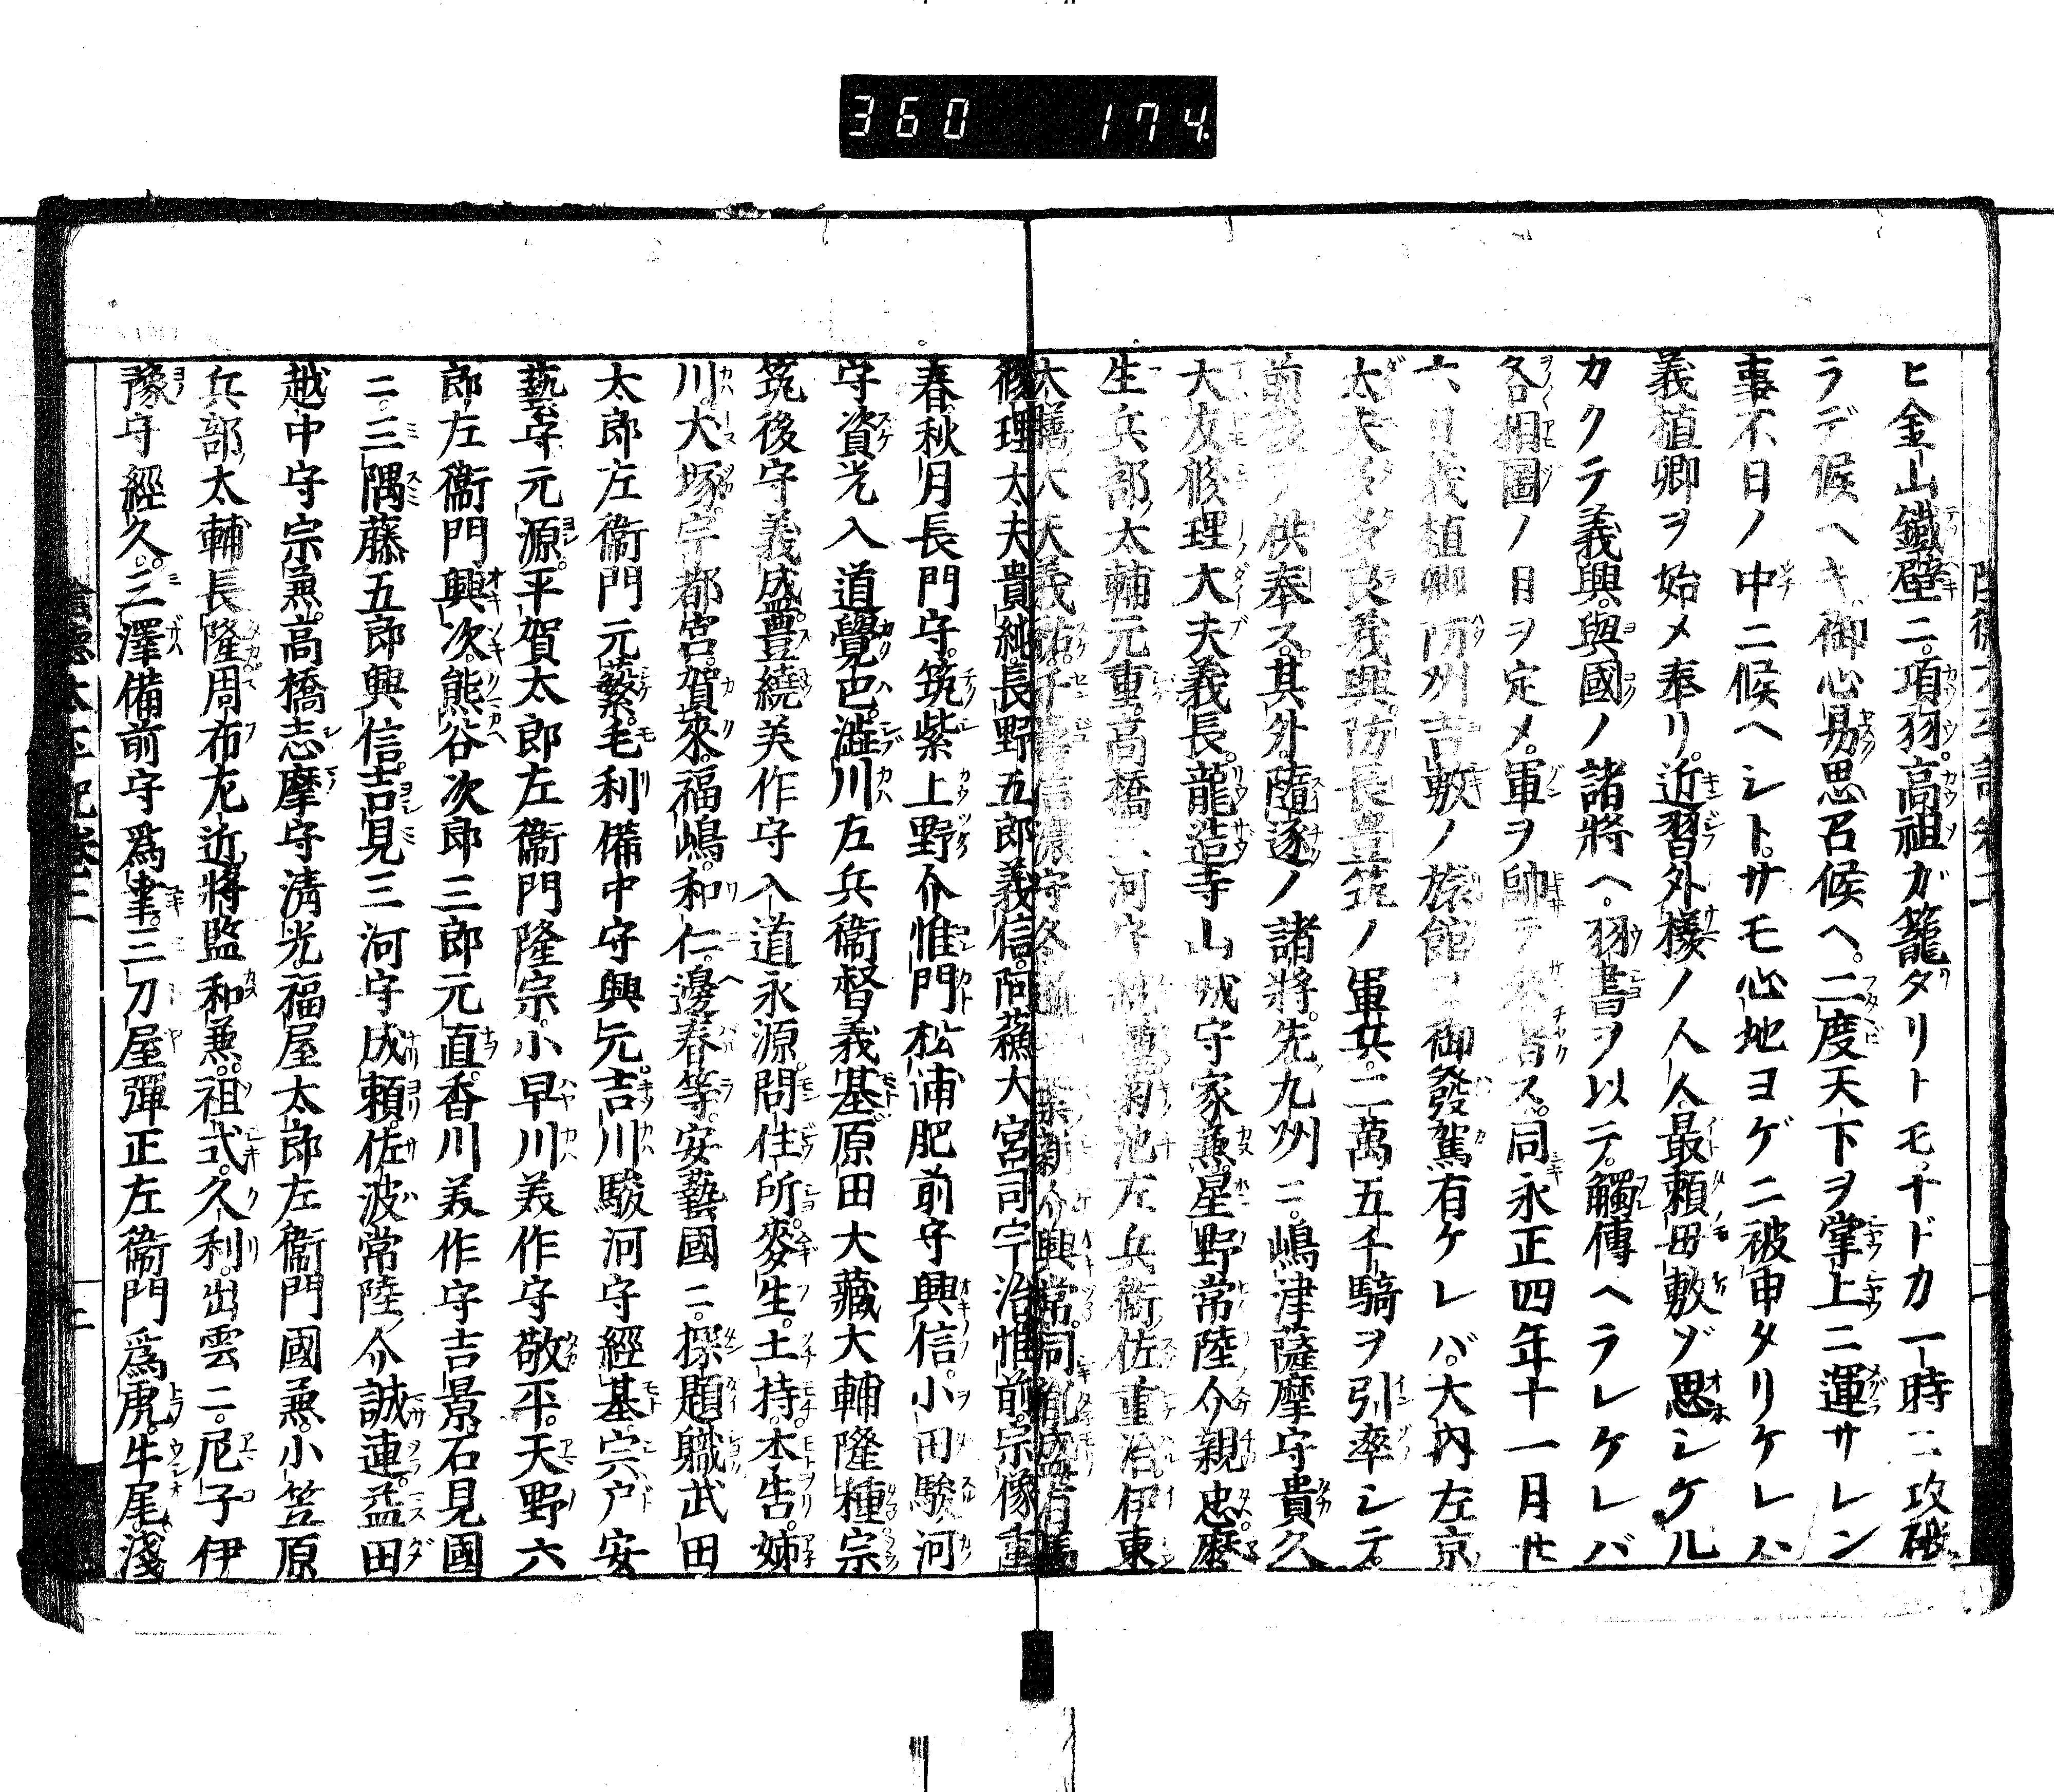 360 174.
ヒ金山鐵壁ニ。項羽。高祖ガ籠タリトモ。ナドカ一時ニ攻破
ラデ候ヘキ。御心易思召候ヘ。二度天下ヲ掌上ニ運サレン
事不日ノ中ニ候ヘシト。サモ心地ヨゲニ被申タリケレハ
義植卿ヲ始メ奉リ。近習外樣ノ人人。最頼母敷ゾ思シケル
カクテ義興。與國ノ諸將ヘ。羽書ヲ以テ。觸傳ヘラレケレバ
各相圖ノ日ヲ定メ。軍ヲ帥テ着ス。同永正四年十一月廿
六日義植卿防州吉敷ノ旅館ヲ御發駕有ケレバ。大内左京
太夫多々良義興。防長豊筑ノ軍兵。二萬五千騎ヲ引率シテ。
前後ヲ供奉ス。其外。隨逐ノ諸將。先九州ニ。嶋津薩摩守貴久
大友修理大夫義長。龍造寺山城守家兼。星野常陸介親忠。麿
生兵部太輔元重。高橋三河守。菊池左兵衞佐重治。伊東
大膳大夫義祐。千葉信濃守興常。同胤盛。有馬
修理太夫貴純。長野五郎義信。阿蘇大宮司宇治惟前。宗像重
春。秋月長門守。筑紫上野介惟門。松浦肥前守興信。小田駿河
守資光入道覺巴。澁川左兵衞督義基。原田大藏大輔隆種。宗
筑後守義盛。豊繞美作守入道永源。問住所。麥生。土持。本告。姉
川。犬塚。宇都宮。賀來。福嶋。和仁。邊春等。安藝國ニ。探題職武田
太郎左衞門元繁。毛利備中守興元。吉川駿河守經基。宍戸安
藝守元源。平賀太郎左衞門隆宗。小早川美作守敬平。天野六
郎左衞門興次。熊谷次郎三郎元直。香川美作守吉景。石見國
ニ。三隅藤五郎興信。吉見三河守成頼。佐波常陸介誠連。益田
越中守宗兼。高橋志摩守清光。福屋太郎左衞門國兼。小笠原
兵部太輔長隆。周布左近將監和兼。祖式。久利。出雲ニ。尼子伊
豫守經久。三澤備前守爲聿。三刀屋彈正左衞門爲虎。牛尾。淺
陰德太平記卷二